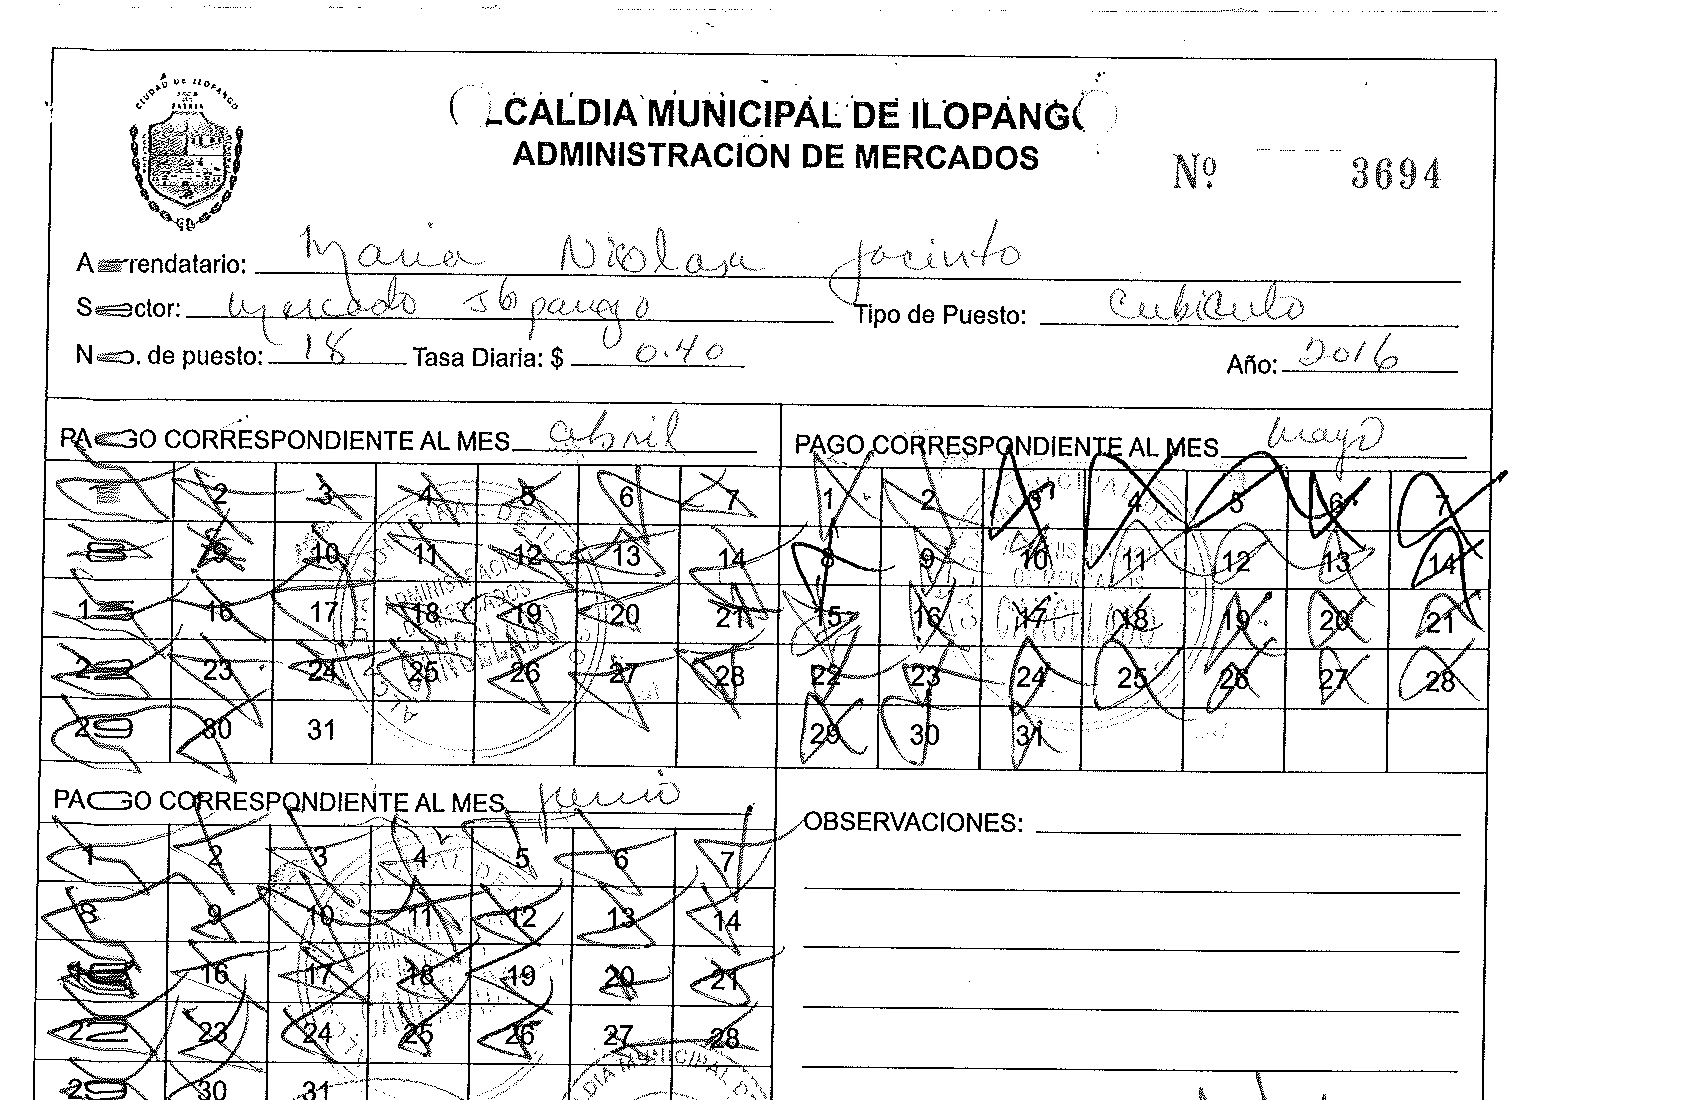 CIUDAD DE ILOPANGO
ALCALDIA MUNICIPAL DE ILOPANGO
ADMINISTRACION DE MERCADOS
Nº 3694
Arrendatario: Maria Nicolasa Jacinto
Sector: Mercado Ilopango Tipo de Puesto: Cubiculo
No. de puesto: 18 Tasa Diaria: $ 0.40 Año: 2016
PAGO CORRESPONDIENTE AL MES abril
1 2 3 4 5 6 7
8 9 10 11 12 13 14
15 16 17 18 19 20 21
22 23 24 25 26 27 28
29 30 31
PAGO CORRESPONDIENTE AL MES mayo
1 2 3 4 5 6 7
8 9 10 11 12 13 14
15 16 17 18 19 20 21
22 23 24 25 26 27 28
29 30 31
PAGO CORRESPONDIENTE AL MES junio
1 2 3 4 5 6 7
8 9 10 11 12 13 14
15 16 17 18 19 20 21
22 23 24 25 26 27 28
29 30 31
OBSERVACIONES: